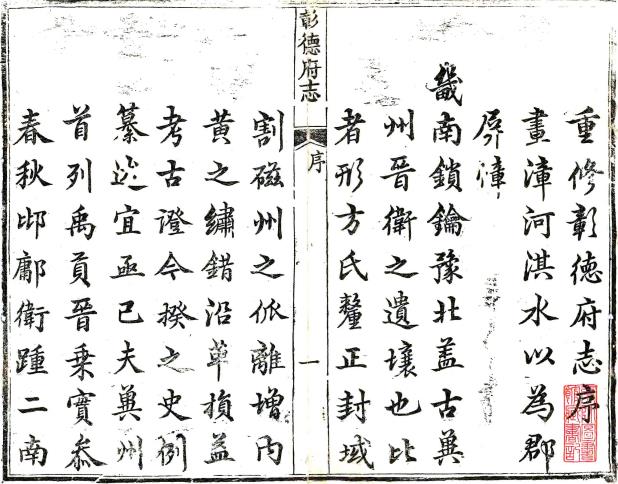 重修彰德府志序
畫漳河淇水以為郡
屏障
畿南鎖鑰豫北盖古冀
州晉衛之遺壤也比
者形方氏釐正封域
彰德府志
序
一
割磁州之仳離增内
黄之繡錯沿革損益
考古證今揆之史例
纂述宜亟已夫冀州
首列禹貢晉乗實叅
春秋邶鄘衛踵二南